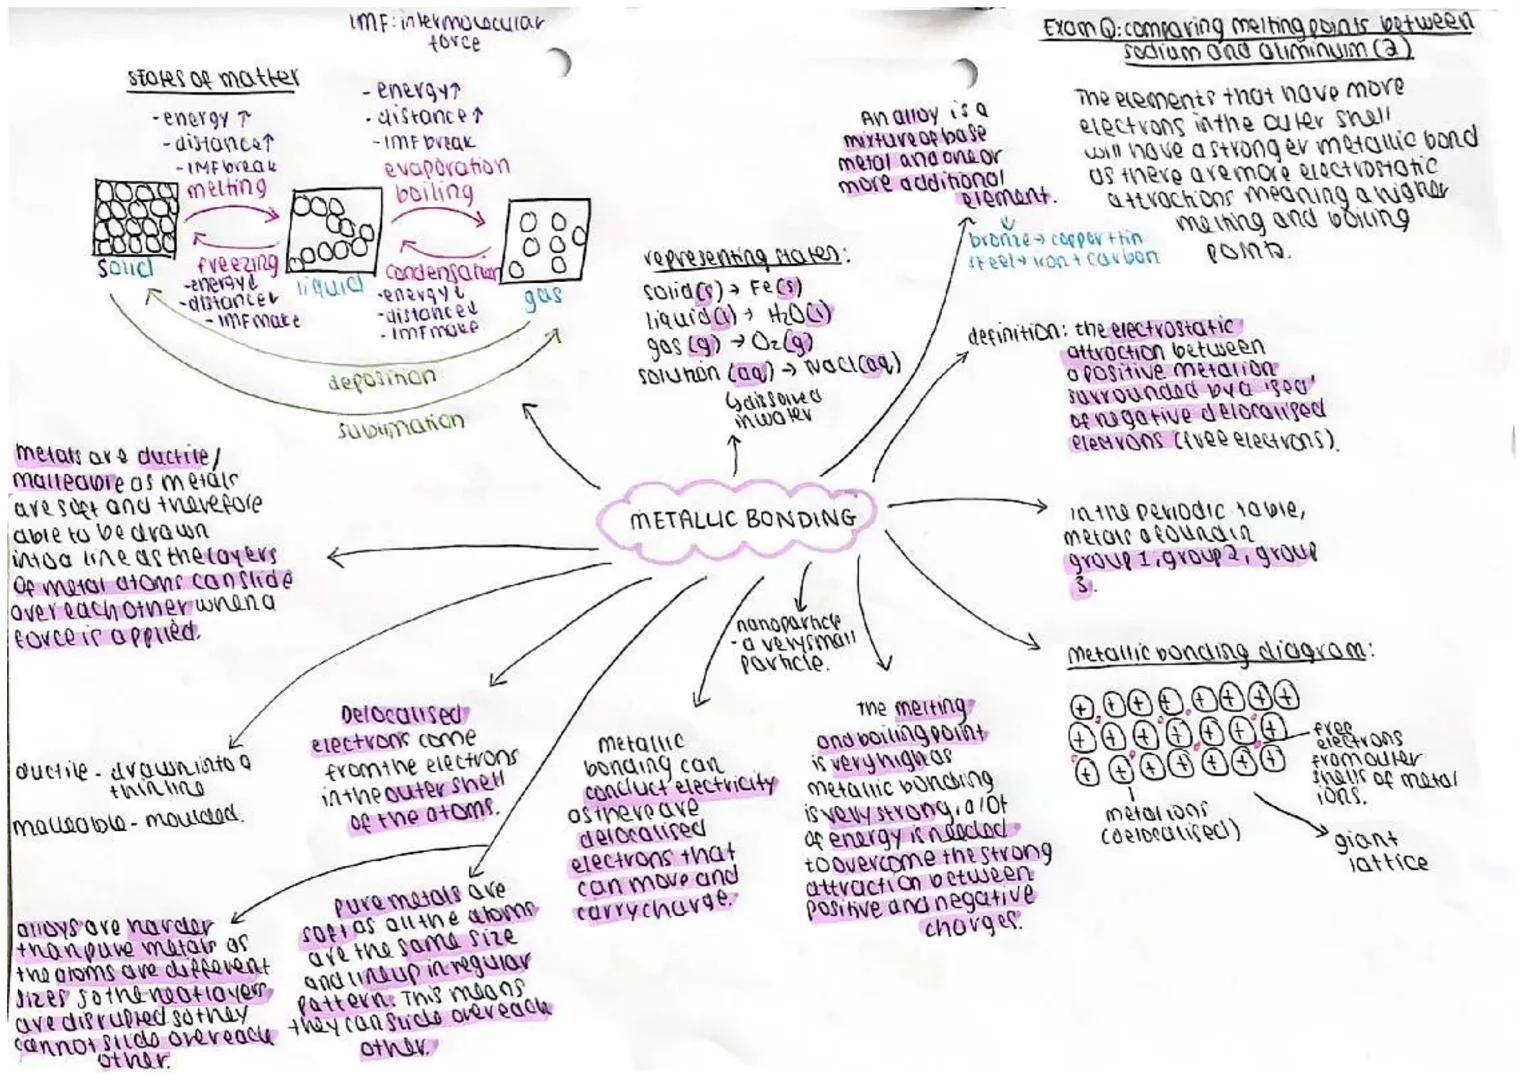 IMF: intermolecular
force
states of matter
- energy ↑
- distance ↑
- IMF break
melting
- energy ↑
- distance ↑
- IMF break
evaporation
boiling
solid
freezing
- energy ↓
- distance ↓
- IMF make
liquid
condensation
- energy ↓
- distance ↓
- IMF make
gas
deposition
sublimation
representing states:
solid (s) → Fe(s)
liquid (l) → H2O(l)
gas (g) → O2(g)
solution (aq) → NaCl(aq)
↳ dissolved
in water
An alloy is a
mixture of base
metal and one or
more additional
element.
bronze → copper + tin
steel → iron + carbon
Exam Q: comparing melting points between
sodium and aluminium (2)
The elements that have more
electrons in the outer shell
will have a stronger metallic bond
as there are more electrostatic
attractions meaning a higher
melting and boiling
points.
definition: the electrostatic
attraction between
a positive metal ion
surrounded by a 'sea'
of negative delocalised
electrons (free electrons).
METALLIC BONDING
in the periodic table,
metals a found in
group 1, group 2, group
3.
metallic bonding diagram:
+ + + + + + + +
+ + + + + + +
+ + + + + + +
free
electrons
from outer
shells of metal
ions.
metal ions
(delocalised)
giant
lattice
metals are ductile/
malleable as metals
are soft and therefore
able to be drawn
into a line as the layers
of metal atoms can slide
over each other when a
force is applied.
ductile - drawn into a
thin line
malleable - moulded.
Delocalised
electrons come
from the electrons
in the outer shell
of the atoms.
alloys are harder
than pure metals as
the atoms are different
sizes so the neat layers
are disrupted so they
cannot slide over each
other.
pure metals are
soft as all the atoms
are the same size
and line up in regular
pattern. This means
they can slide over each
other.
metallic
bonding can
conduct electricity
as there are
delocalised
electrons that
can move and
carry charge.
nanoparticle
- a very small
particle.
The melting
and boiling point
is very high as
metallic bonding
is very strong, a lot
of energy is needed
to overcome the strong
attraction between
positive and negative
charges.